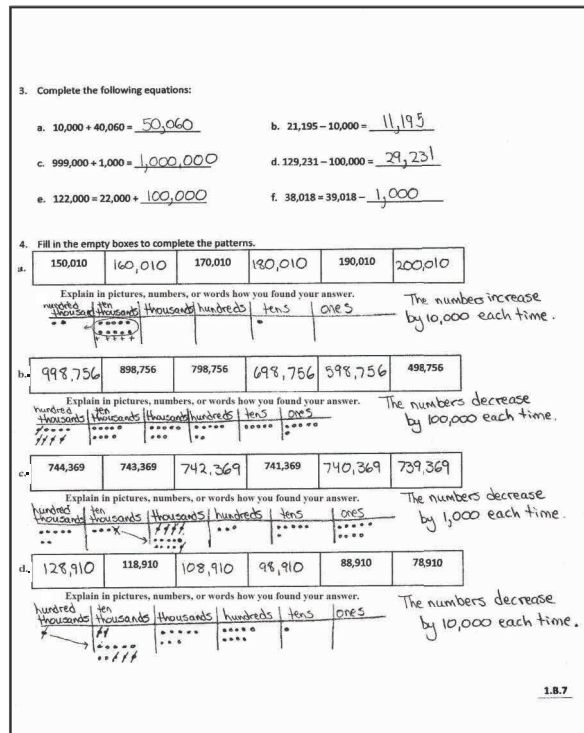 3. Complete the following equations:
a. 10,000 + 40,060 = 50,060 b. 21,195 – 10,000 = 11,195
c. 999,000 + 1,000 = 1,000,000 d. 129,231 – 100,000 = 29,231
e. 122,000 = 22,000 + 100,000 f. 38,018 = 39,018 – 1,000
4. Fill in the empty boxes to complete the patterns.
a. 150,010 160,010 170,010 180,010 190,010 200,010
Explain in pictures, numbers, or words how you found your answer.
hundred thousand ten thousands thousands hundreds tens ones
The numbers increase
by 10,000 each time.
b. 998,756 898,756 798,756 698,756 598,756 498,756
Explain in pictures, numbers, or words how you found your answer.
hundred thousands ten thousands thousands hundreds tens ones
The numbers decrease
by 100,000 each time.
c. 744,369 743,369 742,369 741,369 740,369 739,369
Explain in pictures, numbers, or words how you found your answer.
hundred thousands ten thousands thousands hundreds tens ones
The numbers decrease
by 1,000 each time.
d. 128,910 118,910 108,910 98,910 88,910 78,910
Explain in pictures, numbers, or words how you found your answer.
hundred thousands ten thousands thousands hundreds tens ones
The numbers decrease
by 10,000 each time.
1.B.7